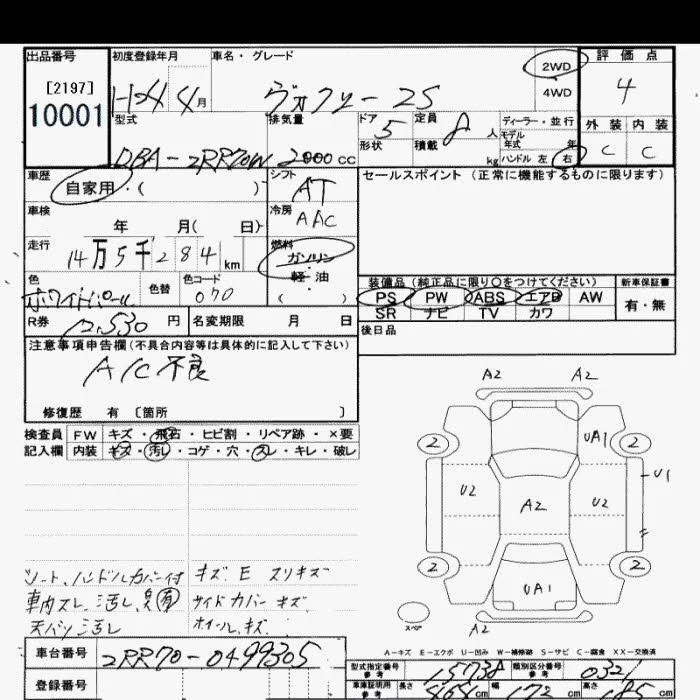 出品番号 初度登録年月 車名・グレード 2WD 評価点
[2197] H24 4月 ヴォクシー 2S 4WD 4
10001 型式 排気量 ドア 定員 ディーラー・並行 外装 内装
DBA-ZRR70W 2000cc 5 8人 モデル年式 年 C C
形状 積載 kg ハンドル 左 右
車歴 シフト セールスポイント (正常に機能するものに限ります)
自家用・( ) AT
車検 冷房
年 月( 日) AAC
走行 燃料
14万5千284km ガソリン
軽・油
色 色替 色コード ( ) 装備品(純正品に限り○をつけてください) 新車保証書
ホワイトパール 070 PS PW ABS エアB AW 有・無
SR ナビ TV カワ
R券 12,530円 名変期限 月 日 後日品
注意事項申告欄(不具合内容等は具体的に記入して下さい)
A/C不良
修復歴 有 〔箇所 〕
検査員 FW キズ・飛石・ヒビ割・リペア跡・×要
記入欄 内装 キズ・汚レ・コゲ・穴・スレ・キレ・破レ
A2 A2
2 UA1 2
U1
U2 A2 U2
2 2
UA1
スペア
A2
シート、ハンドルカバー付 キズ E スリキズ
車内スレ、汚レ、臭有 サイドカバーキズ
天バリ汚レ ホイールキズ
A-キズ E-エクボ U-凹み W-補修跡 S-サビ C-腐食 XX-交換済
車台番号 ZRR70-0499305
型式指定番号 参考 15738 類別区分番号 参考 0321
登録番号 車庫証明用 参考 長さ cm 幅 172cm 高さ 185cm